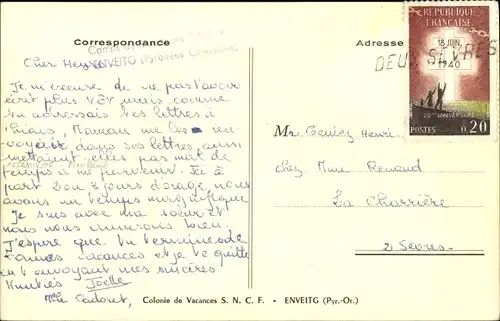 Correspondance
Adresse
ENVEITG (Pyrénées Orientales)
REPUBLIQUE
FRANÇAISE
18 JUIN
1940
DEUX SEVRES
25e ANNIVERSAIRE
POSTES 0,20
Cher
Je m'excuse de ne pas t'avoir
écrit plus tôt mais comme
tu adressais tes lettres à
Maman me les ren-
voyait dans ses lettres, aussi
mettaient elles pas mal de
temps à me parvenir. Ici à
part 2 ou 3 jours d'orage nous
avons un temps magnifique
Je suis avec ma soeur et
nous nous amusons bien.
J'espère que tu termines de
bonnes vacances et je te quitte
en t'envoyant mes sincères
Amitiés Joëlle
Mlle Cadoret,
Mr Henri
chez Mme Renaud
La Charrière
2 Sèvres
Colonie de Vacances S. N. C. F. - ENVEITG (Pyr.-Or.)